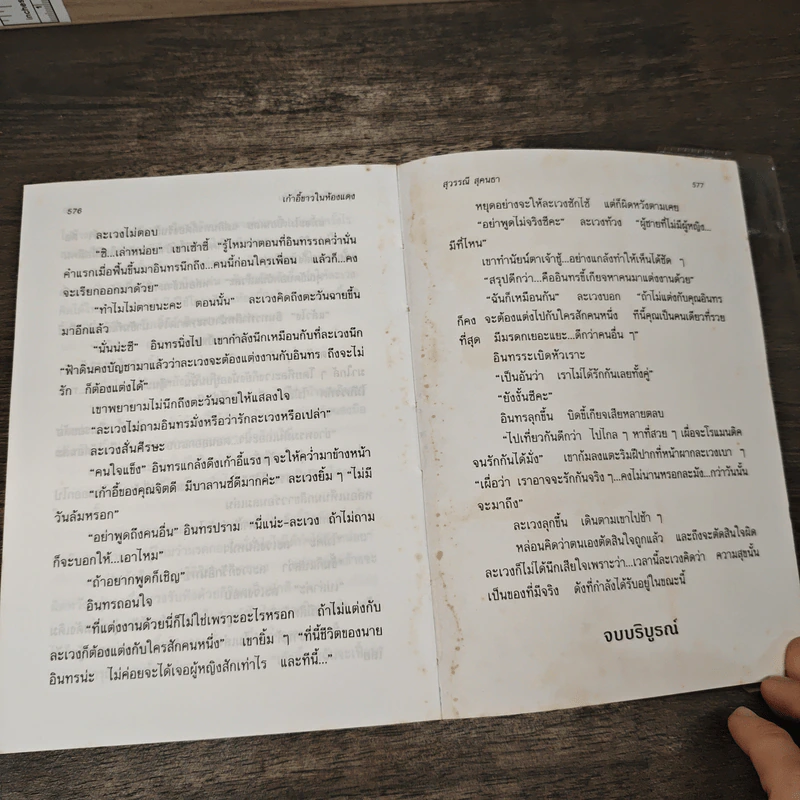 Inches
576
เก้าอี้ขาวในห้องแดง
ละเวงไม่ตอบ
“ฮึ...เล่าหน่อย” เขาเซ้าซี้ “รู้ไหมว่าตอนที่อินทรรถคว่ำนั่น
คำแรกเมื่อฟื้นขึ้นมาอินทรนึกถึง...คนนี้ก่อนใครเพื่อน แล้วก็...คง
จะเรียกออกมาด้วย”
“ทำไมไม่ตายนะคะ ตอนนั้น” ละเวงคิดถึงตะวันฉายขึ้น
มาอีกแล้ว
“นั่นน่ะซี” อินทรนิ่งไป เขากำลังนึกเหมือนกับที่ละเวงนึก
“ฟ้าดินคงบัญชามาแล้วว่าละเวงจะต้องแต่งงานกับอินทร ถึงจะไม่
รัก ก็ต้องแต่งได้”
เขาพยายามไม่นึกถึงตะวันฉายให้แสลงใจ
“ละเวงไม่ถามอินทรมั่งหรือว่ารักละเวงหรือเปล่า”
ละเวงสั่นศีรษะ
“คนใจแข็ง” อินทรแกล้งดึงเก้าอี้แรง ๆ จะให้คว่ำมาข้างหน้า
“เก้าอี้ของคุณจิตดี มีบาลานซ์ดีมากค่ะ” ละเวงยิ้ม ๆ “ไม่มี
วันล้มหรอก”
“อย่าพูดถึงคนอื่น” อินทรปราม “นี่แน่ะ-ละเวง ถ้าไม่ถาม
ก็จะบอกให้...เอาไหม”
“ถ้าอยากพูดก็เชิญ”
อินทรถอนใจ
“ที่แต่งงานด้วยนี่ก็ไม่ใช่เพราะอะไรหรอก ถ้าไม่แต่งกับ
ละเวงก็ต้องแต่งกับใครสักคนหนึ่ง” เขายิ้ม ๆ “ที่นี้ชีวิตของนาย
อินทรน่ะ ไม่ค่อยจะได้เจอผู้หญิงสักเท่าไร และทีนี้...”
สุวรรณี สุคนธา
577
หยุดอย่างจะให้ละเวงซักไซ้ แต่ก็ผิดหวังตามเคย
“อย่าพูดไม่จริงซีคะ” ละเวงท้วง “ผู้ชายที่ไม่มีผู้หญิง...
มีที่ไหน”
เขาทำนัยน์ตาเจ้าชู้...อย่างแกล้งทำให้เห็นได้ชัด ๆ
“สรุปดีกว่า...คืออินทรขี้เกียจหาคนมาแต่งงานด้วย”
“ฉันก็เหมือนกัน” ละเวงบอก “ถ้าไม่แต่งกับคุณอินทร
ก็คง จะต้องแต่งไปกับใครสักคนหนึ่ง ทีนี้คุณเป็นคนเดียวที่รวย
ที่สุด มีมรดกเยอะแยะ...ดีกว่าคนอื่น ๆ”
อินทรระเบิดหัวเราะ
“เป็นอันว่า เราไม่ได้รักกันเลยทั้งคู่”
“ยังงั้นซีคะ”
อินทรลุกขึ้น บิดขี้เกียจเสียหลายตลบ
“ไปเที่ยวกันดีกว่า ไปไกล ๆ หาที่สวย ๆ เผื่อจะโรแมนติค
จนรักกันได้มั่ง” เขาก้มลงแตะริมฝีปากที่หน้าผากละเวงเบา ๆ
“เผื่อว่า เราอาจจะรักกันจริง ๆ...คงไม่นานหรอกละมัง...กว่าวันนั้น
จะมาถึง”
ละเวงลุกขึ้น เดินตามเขาไปช้า ๆ
หล่อนคิดว่าตนเองตัดสินใจถูกแล้ว และถึงจะตัดสินใจผิด
ละเวงก็ไม่ได้นึกเสียใจเพราะว่า...เวลานี้ละเวงคิดว่า ความสุขนั้น
เป็นของที่มีจริง ดังที่กำลังได้รับอยู่ในขณะนี้
จบบริบูรณ์